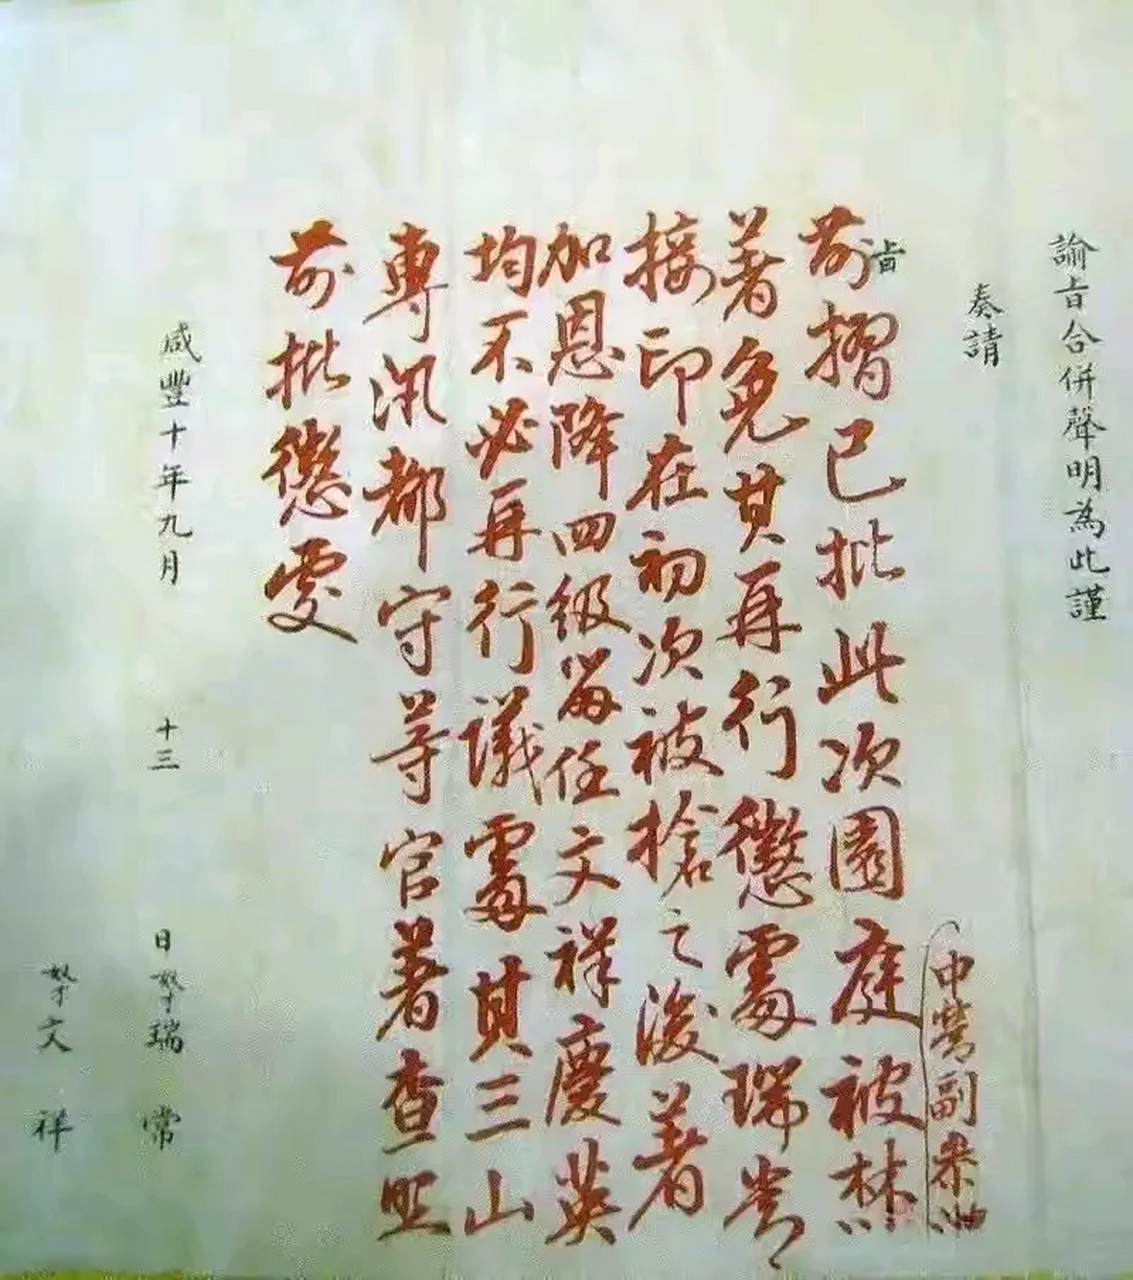 諭旨合併聲明為此謹
奏請
旨
中營副參
前摺已批此次園庭被焚
著免其再行懲處瑞常
接印在初次被搶之後著
加恩降四級留任文祥慶英
均不必再行議處其三山
專汛都守等官著查照
前批懲處
咸豐十年九月 十三 日奴才瑞常
奴才文祥